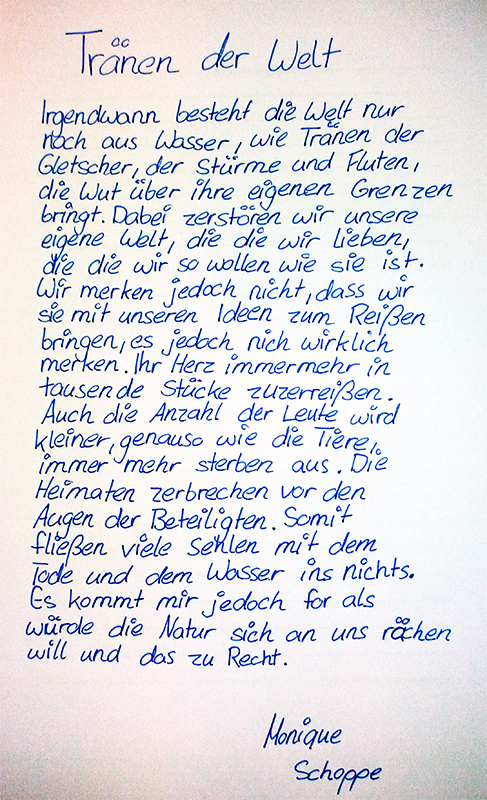 Tränen der Welt
Irgendwann besteht die Welt nur
noch aus Wasser, wie Tränen der
Gletscher, der Stürme und Fluten,
die Wut über ihre eigenen Grenzen
bringt. Dabei zerstören wir unsere
eigene Welt, die die wir Lieben,
die die wir so wollen wie sie ist.
Wir merken jedoch nicht, dass wir
sie mit unseren Ideen zum Reißen
bringen, es jedoch nich wirklich
merken. Ihr Herz immermehr in
tausende Stücke zuzerreißen.
Auch die Anzahl der Leute wird
kleiner, genauso wie die Tiere,
immer mehr sterben aus. Die
Heimaten zerbrechen vor den
Augen der Beteiligten. Somit
fließen viele Sehlen mit dem
Tode und dem Wasser ins nichts.
Es kommt mir jedoch for als
würde die Natur sich an uns rächen
will und das zu Recht.
Monique
Schoppe